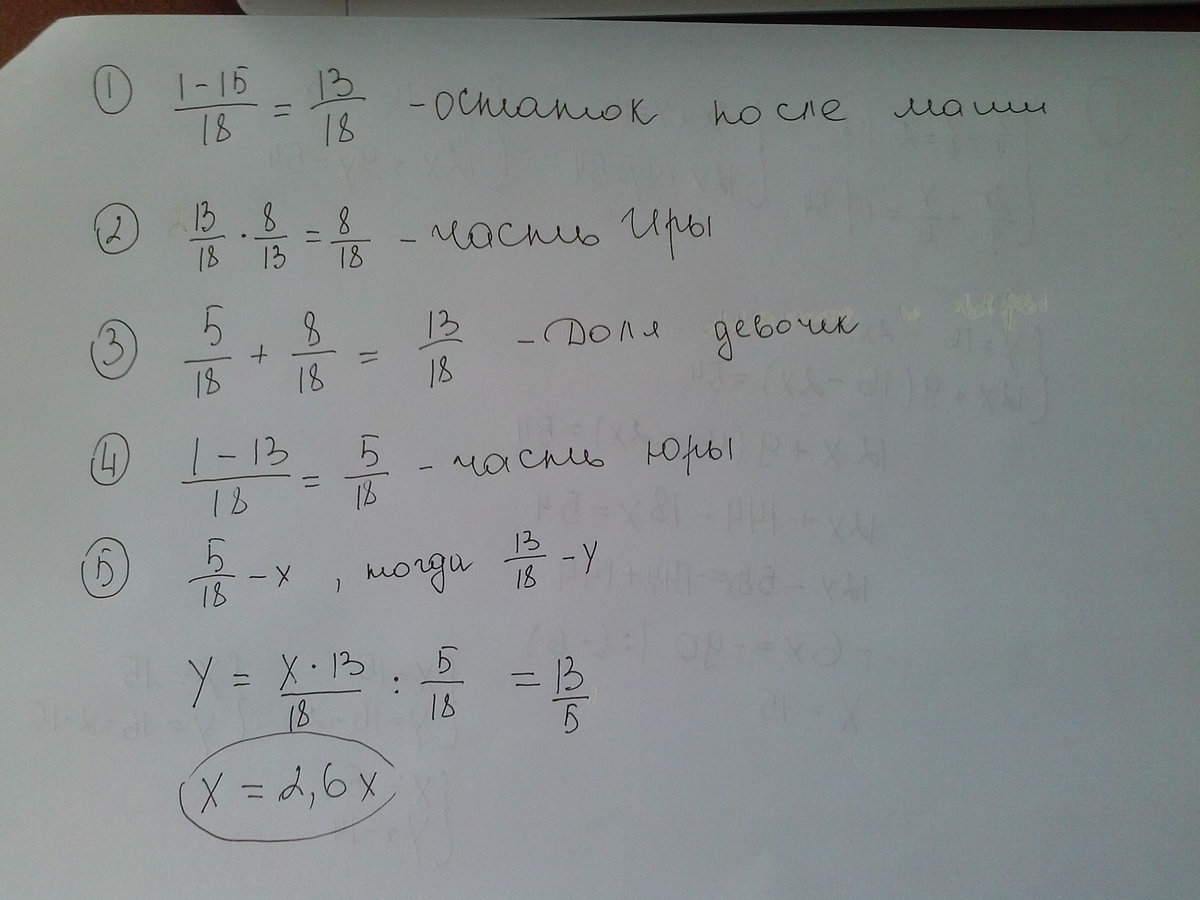 ① 1-15/18 = 13/18 - остаток после маши
② 13/18 · 8/13 = 8/18 - часть Иры
③ 5/18 + 8/18 = 13/18 - Доля девочек
④ 1-13/18 = 5/18 - часть Юры
⑤ 5/18 - x , тогда 13/18 - y
y = x·13/18 : 5/18 = 13/5
x = 2,6x